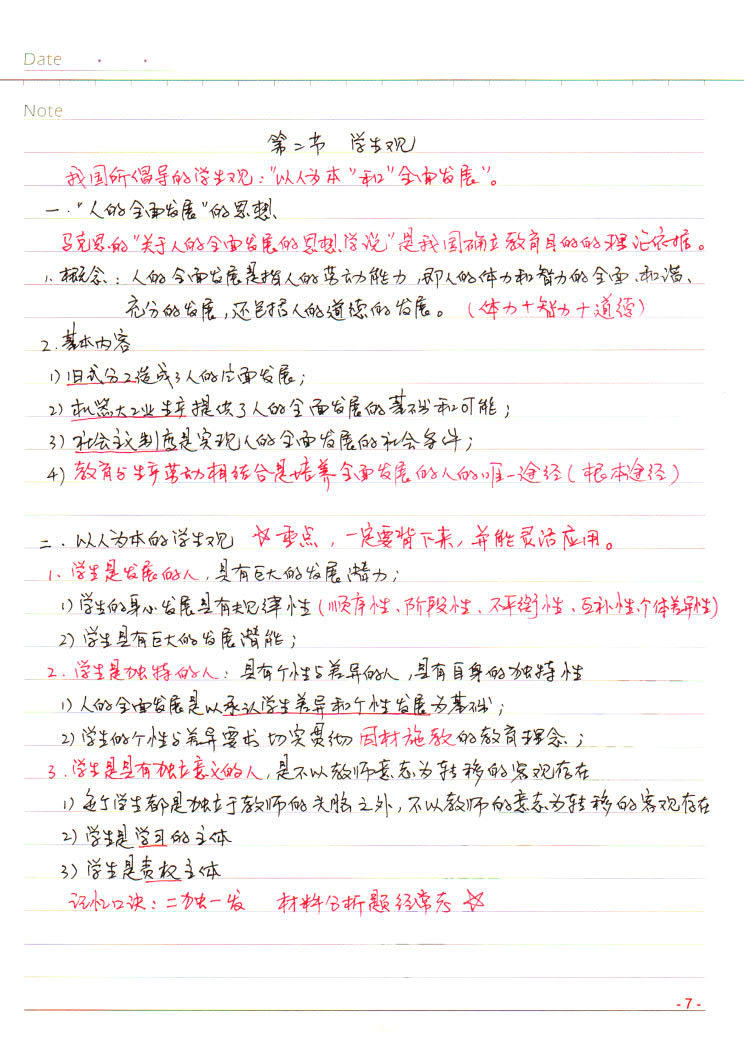 Date
Note
第二节 学生观
我国所倡导的学生观:"以人为本"和"全面发展"。
一."人的全面发展"的思想
马克思的"关于人的全面发展的思想学说"是我国确立教育目的的理论依据。
1.概念:人的全面发展是指人的劳动能力,即人的体力和智力的全面、和谐、
充分的发展,还包括人的道德的发展。(体力+智力+道德)
2.基本内容
1)旧式分工造成了人的片面发展;
2)机器大工业生产提供了人的全面发展的基础和可能;
3)社会主义制度是实现人的全面发展的社会条件;
4)教育与生产劳动相结合是培养全面发展的人的唯一途径(根本途径)
二.以人为本的学生观 ☆重点,一定要背下来,并能灵活应用。
1.学生是发展的人,具有巨大的发展潜力;
1)学生的身心发展具有规律性(顺序性、阶段性、不平衡性、互补性、个体差异性)
2)学生具有巨大的发展潜能;
2.学生是独特的人:具有个性与差异的人,具有自身的独特性
1)人的全面发展是以承认学生差异和个性发展为基础;
2)学生的个性与差异要求切实贯彻因材施教的教育理念;
3.学生是具有独立意义的人,是不以教师意志为转移的客观存在
1)每个学生都是独立于教师的头脑之外,不以教师的意志为转移的客观存在
2)学生是学习的主体
3)学生是责权主体
记忆口诀:二独一发 材料分析题经常考 ☆
- 7 -